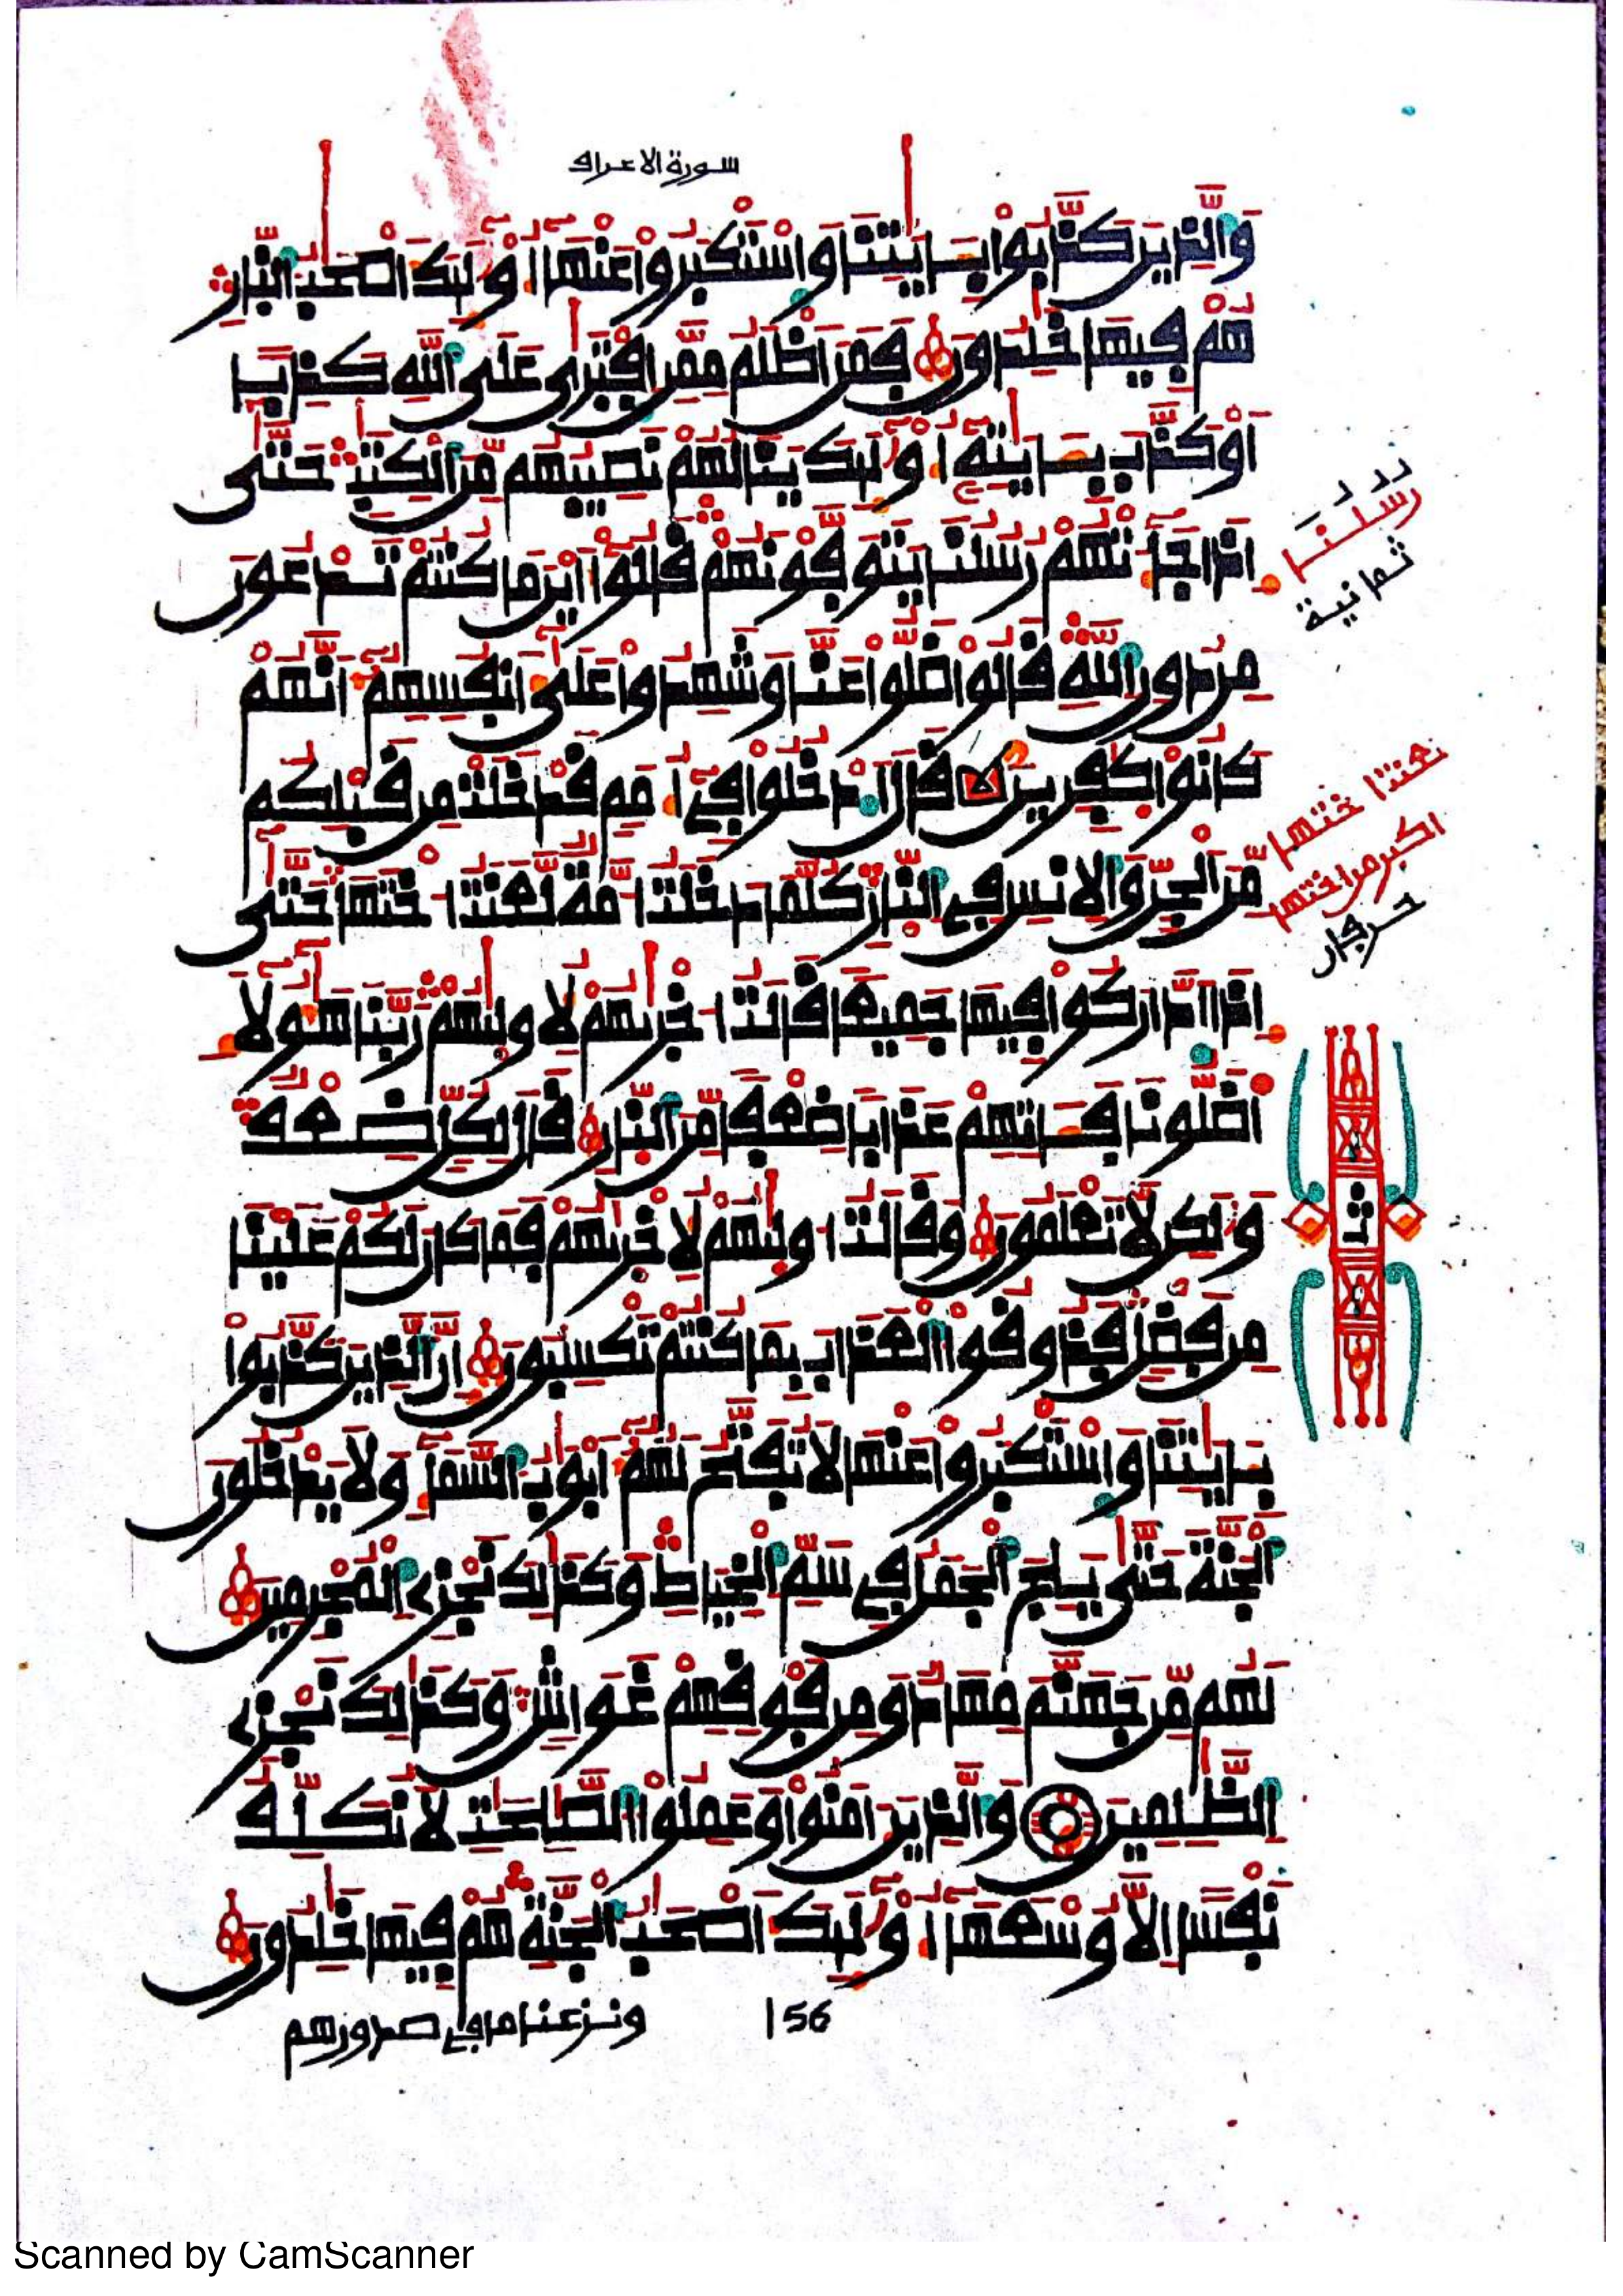 سورة الاعراف
وَالذِينَ كَذَّبُوا بِـَٔايَٰتِنَا وَاسْتَكْبَرُوا عَنْهَا أُوْلَٰٓئِكَ أَصْحَٰبُ النّارِ
هُمْ فِيهَا خَٰلِدُونَ فَمَنَ اَظْلَمُ مِمَّنِ اِفْتَر۪يٰ عَلَي اَللَّهِ كَذِباً
اَوْ كَذَّبَ بِـَٔايَٰتِهِۦٓ أُوْلَٰٓئِكَ يَنَالُهُمْ نَصِيبُهُم مِّنَ اَلْكِتَٰبِ حَتَّيٰٓ
إِذَا جَآءَتْهُمْ رُسُلُنَا يَتَوَفَّوْنَهُمْ قَالُوٓاْ أَيْنَ مَا كُنتُمْ تَدْعُونَ
مِن دُونِ اِللَّهِ قَالُوا ضَلُّوا عَنَّا وَشَهِدُوا عَلَيٰٓ أَنفُسِهِمُۥٓ أَنَّهُمْ
كَانُوا كٰفِرِينَ قَالَ اَدْخُلُوا فِےٓ أُمَمٍ قَدْ خَلَتْ مِن قَبْلِكُم
مِّنَ اَلْجِنِّ وَالِانسِ فِي اِلنّارِ كُلَّمَا دَخَلَتُ ا۟مَّةٌ لَّعَنَتُ ا۟خْتَهَا حَتَّيٰٓ
إِذَا اَدَّارَكُوا فِيهَا جَمِيعاً قَالَتُ ا۟خْر۪يٰهُمْ لِأُول۪يٰهُمْ رَبَّنَا هَٰٓؤُلَآءِ
اَضَلُّونَا فَـَٔاتِهِمْ عَذَاباً ضِعْفاً مِّنَ اَلنّارِ قَالَ لِكُلٍّ ضِعْفٌ
وَلَٰكِن لَّا تَعْلَمُونَ وَقَالَتُ ا۟ول۪يٰهُمْ لِأُخْر۪يٰهُمْ فَمَا كَانَ لَكُمْ عَلَيْنَا
مِن فَضْلٍ فَذُوقُوا اُلْعَذَابَ بِمَا كُنتُمْ تَكْسِبُونَ إِنَّ اَلذِينَ كَذَّبُوا
بِـَٔايَٰتِنَا وَاسْتَكْبَرُوا عَنْهَا لَا تُفَتَّحُ لَهُمُۥٓ أَبْوَٰبُ السَّمَآءِ وَلَا يَدْخُلُونَ
اَلْجَنَّةَ حَتَّيٰ يَلِجَ اَلْجَمَلُ فِي سَمِّ اِلْخِيَاطِ وَكَذَٰلِكَ نَجْزِے اِلْمُجْرِمِينَ
لَهُم مِّن جَهَنَّمَ مِهَادٌ وَمِن فَوْقِهِمْ غَوَاشٍ وَكَذَٰلِكَ نَجْزِے
اِلظَّٰلِمِينَ وَالذِينَ ءَامَنُوا وَعَمِلُوا اُلصَّٰلِحَٰتِ لَا نُكَلِّفُ
نَفْساً اِلَّا وُسْعَهَآ أُوْلَٰٓئِكَ أَصْحَٰبُ اُلْجَنَّةِ هُمْ فِيهَا خَٰلِدُونَ
ونزعنا ما في صدورهم
156
رُسُلُنَا
ثمانية
لعنتا ختهــا
اكبر من اختها
ث
Scanned by CamScanner